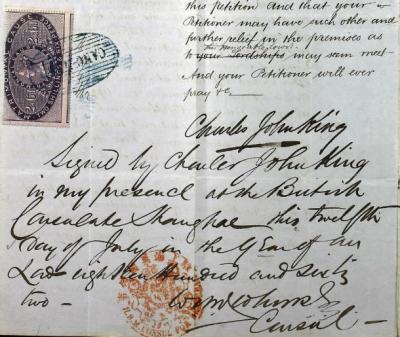 this petition And that your
Petitioner may have such other and
further relief in the premises as
the Honorable Court
to your Lordships may seem meet
And your Petitioner will ever
pray &c
Charles John King
Signed by Charles John King
in my presence at the British
Consulate Shanghae this twelfth
day of July in the Year of our
Lord eighteen hundred and sixty
two —
Consul —